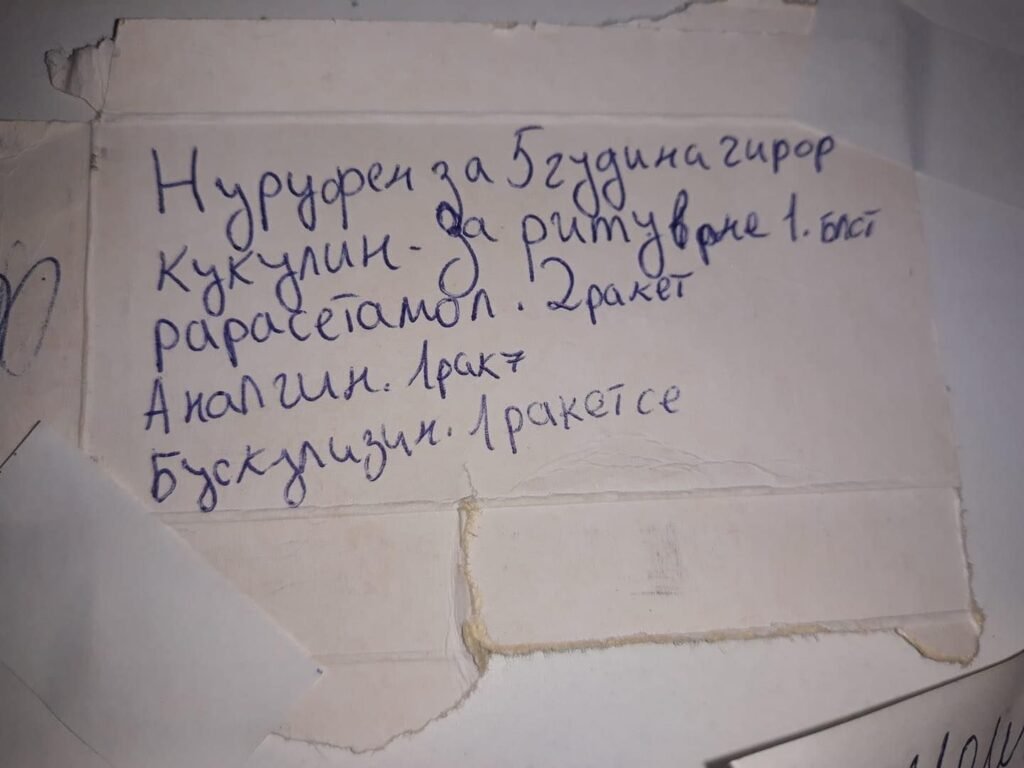 Нуруфен за 5 гудина гирор
Кукулин - за ритуврне 1. блст
рарасетамол. 2 ракет
Аналгин. 1 рак7
Бускулизин. 1 ракетсе